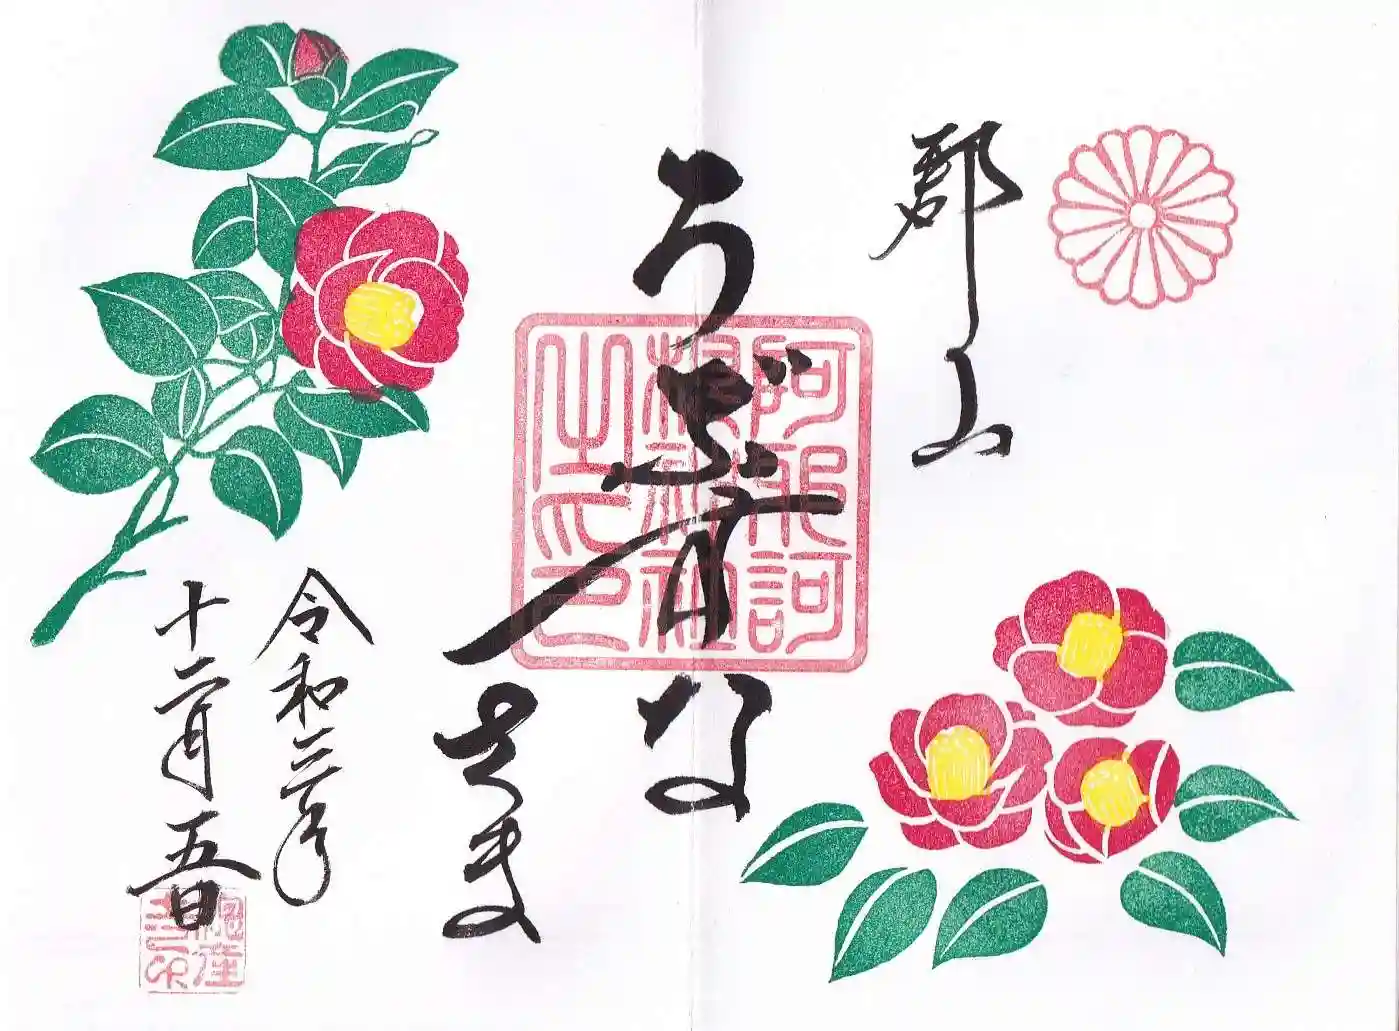 郡山
うぶすな
さま
阿邪訶
根神社
之印
令和三年
十二月五日